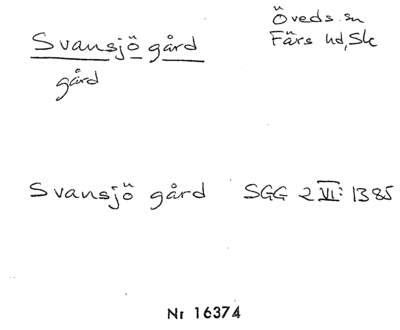 Svansjö gård
gård
Öveds sn
Färs hd, Sk
Svansjö gård SGG 2 VI: 1385
Nr 16374